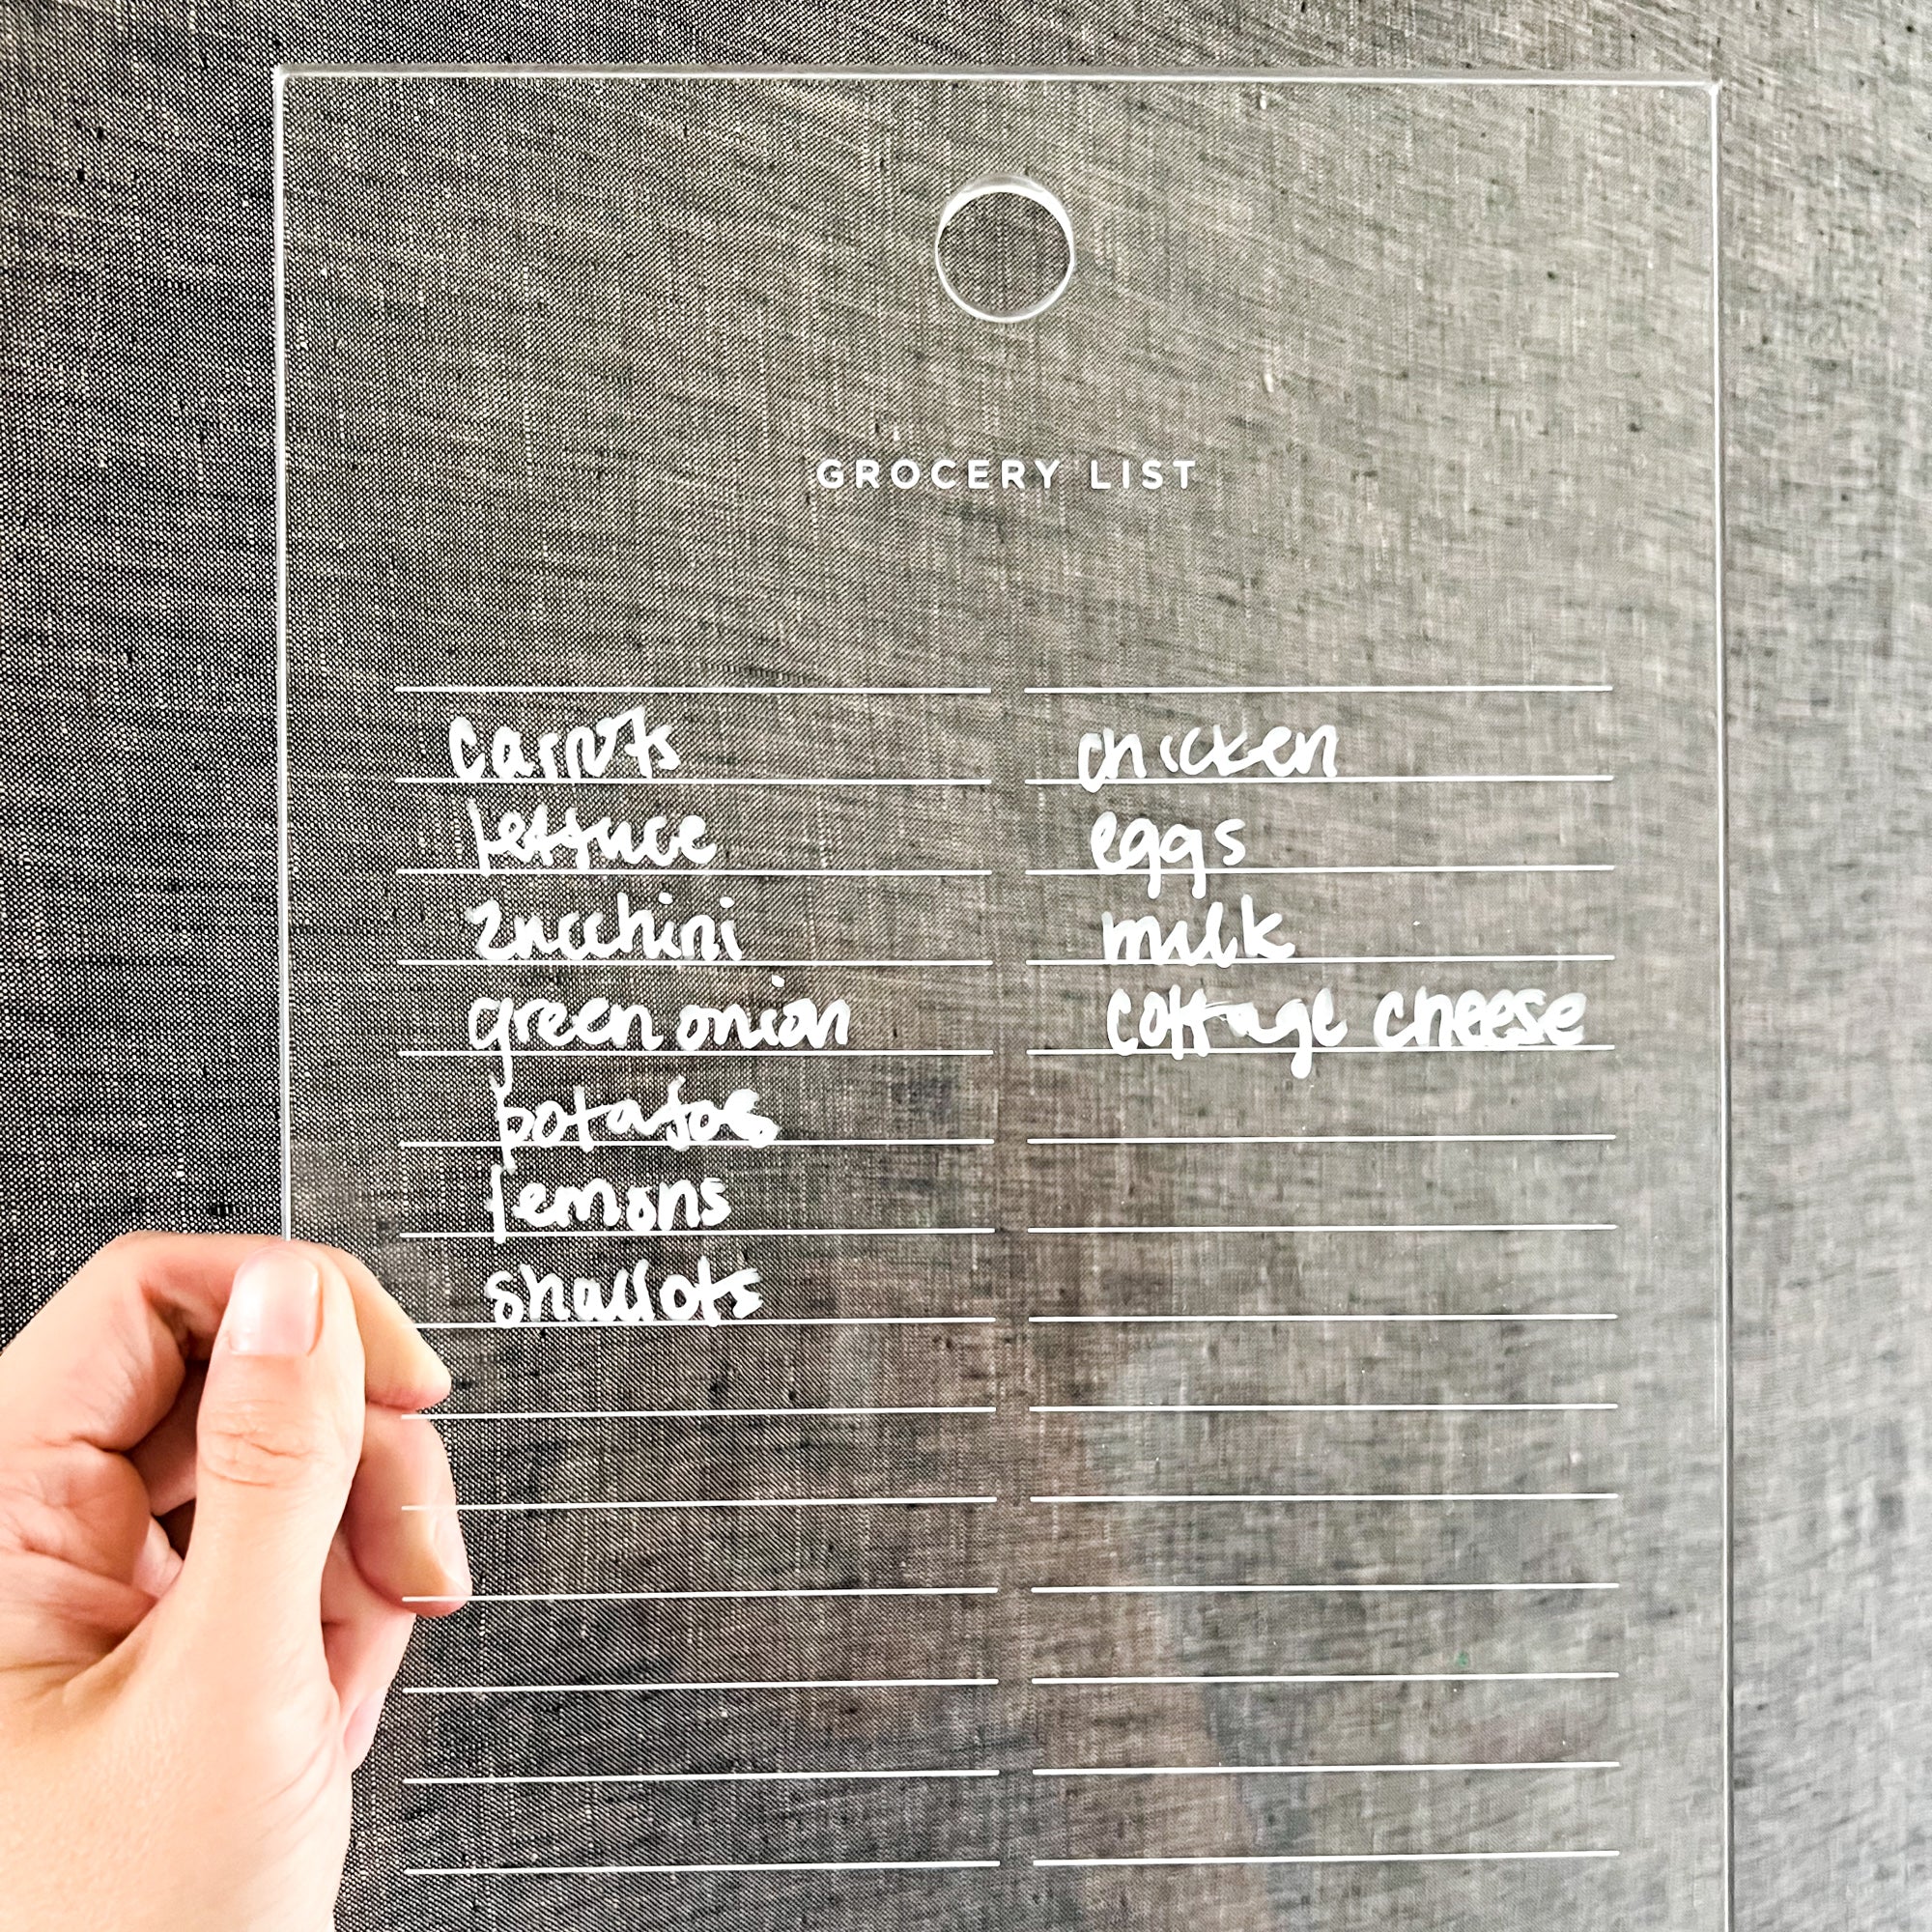 GROCERY LIST
carrots
lettuce
zucchini
green onion
potatos
lemons
shallots
chicken
eggs
milk
cottage cheese